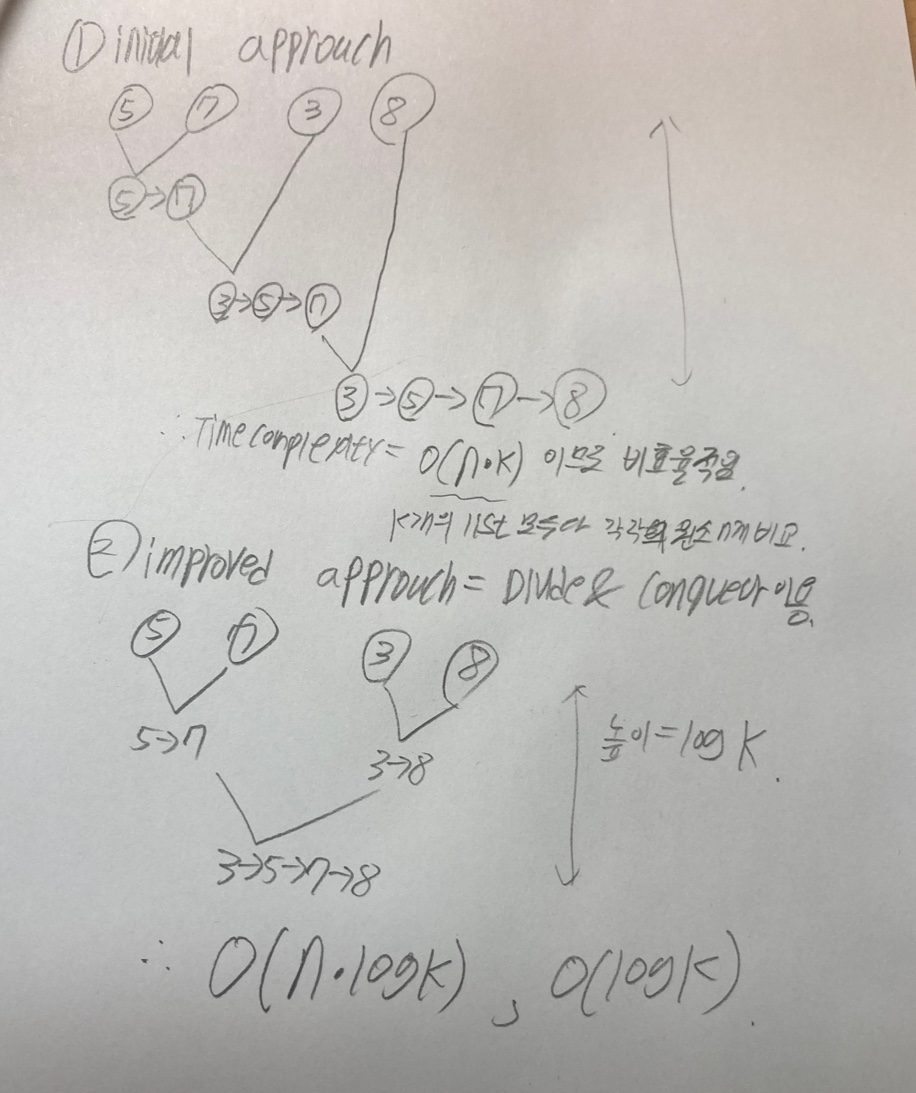 ① initial approuch
5 7 3 8
5→7
3→5→7
3→5→7→8
∴ Time complexity = O(n·k) 이므로 비효율적임.
K개의 list 모두다 각각의 원소 n개 비교.
② improved approuch = Divide & Conquer 이용.
5 7 3 8
5→7
3→8
높이 = log K.
3→5→7→8
∴ O(n·logk), O(logk).